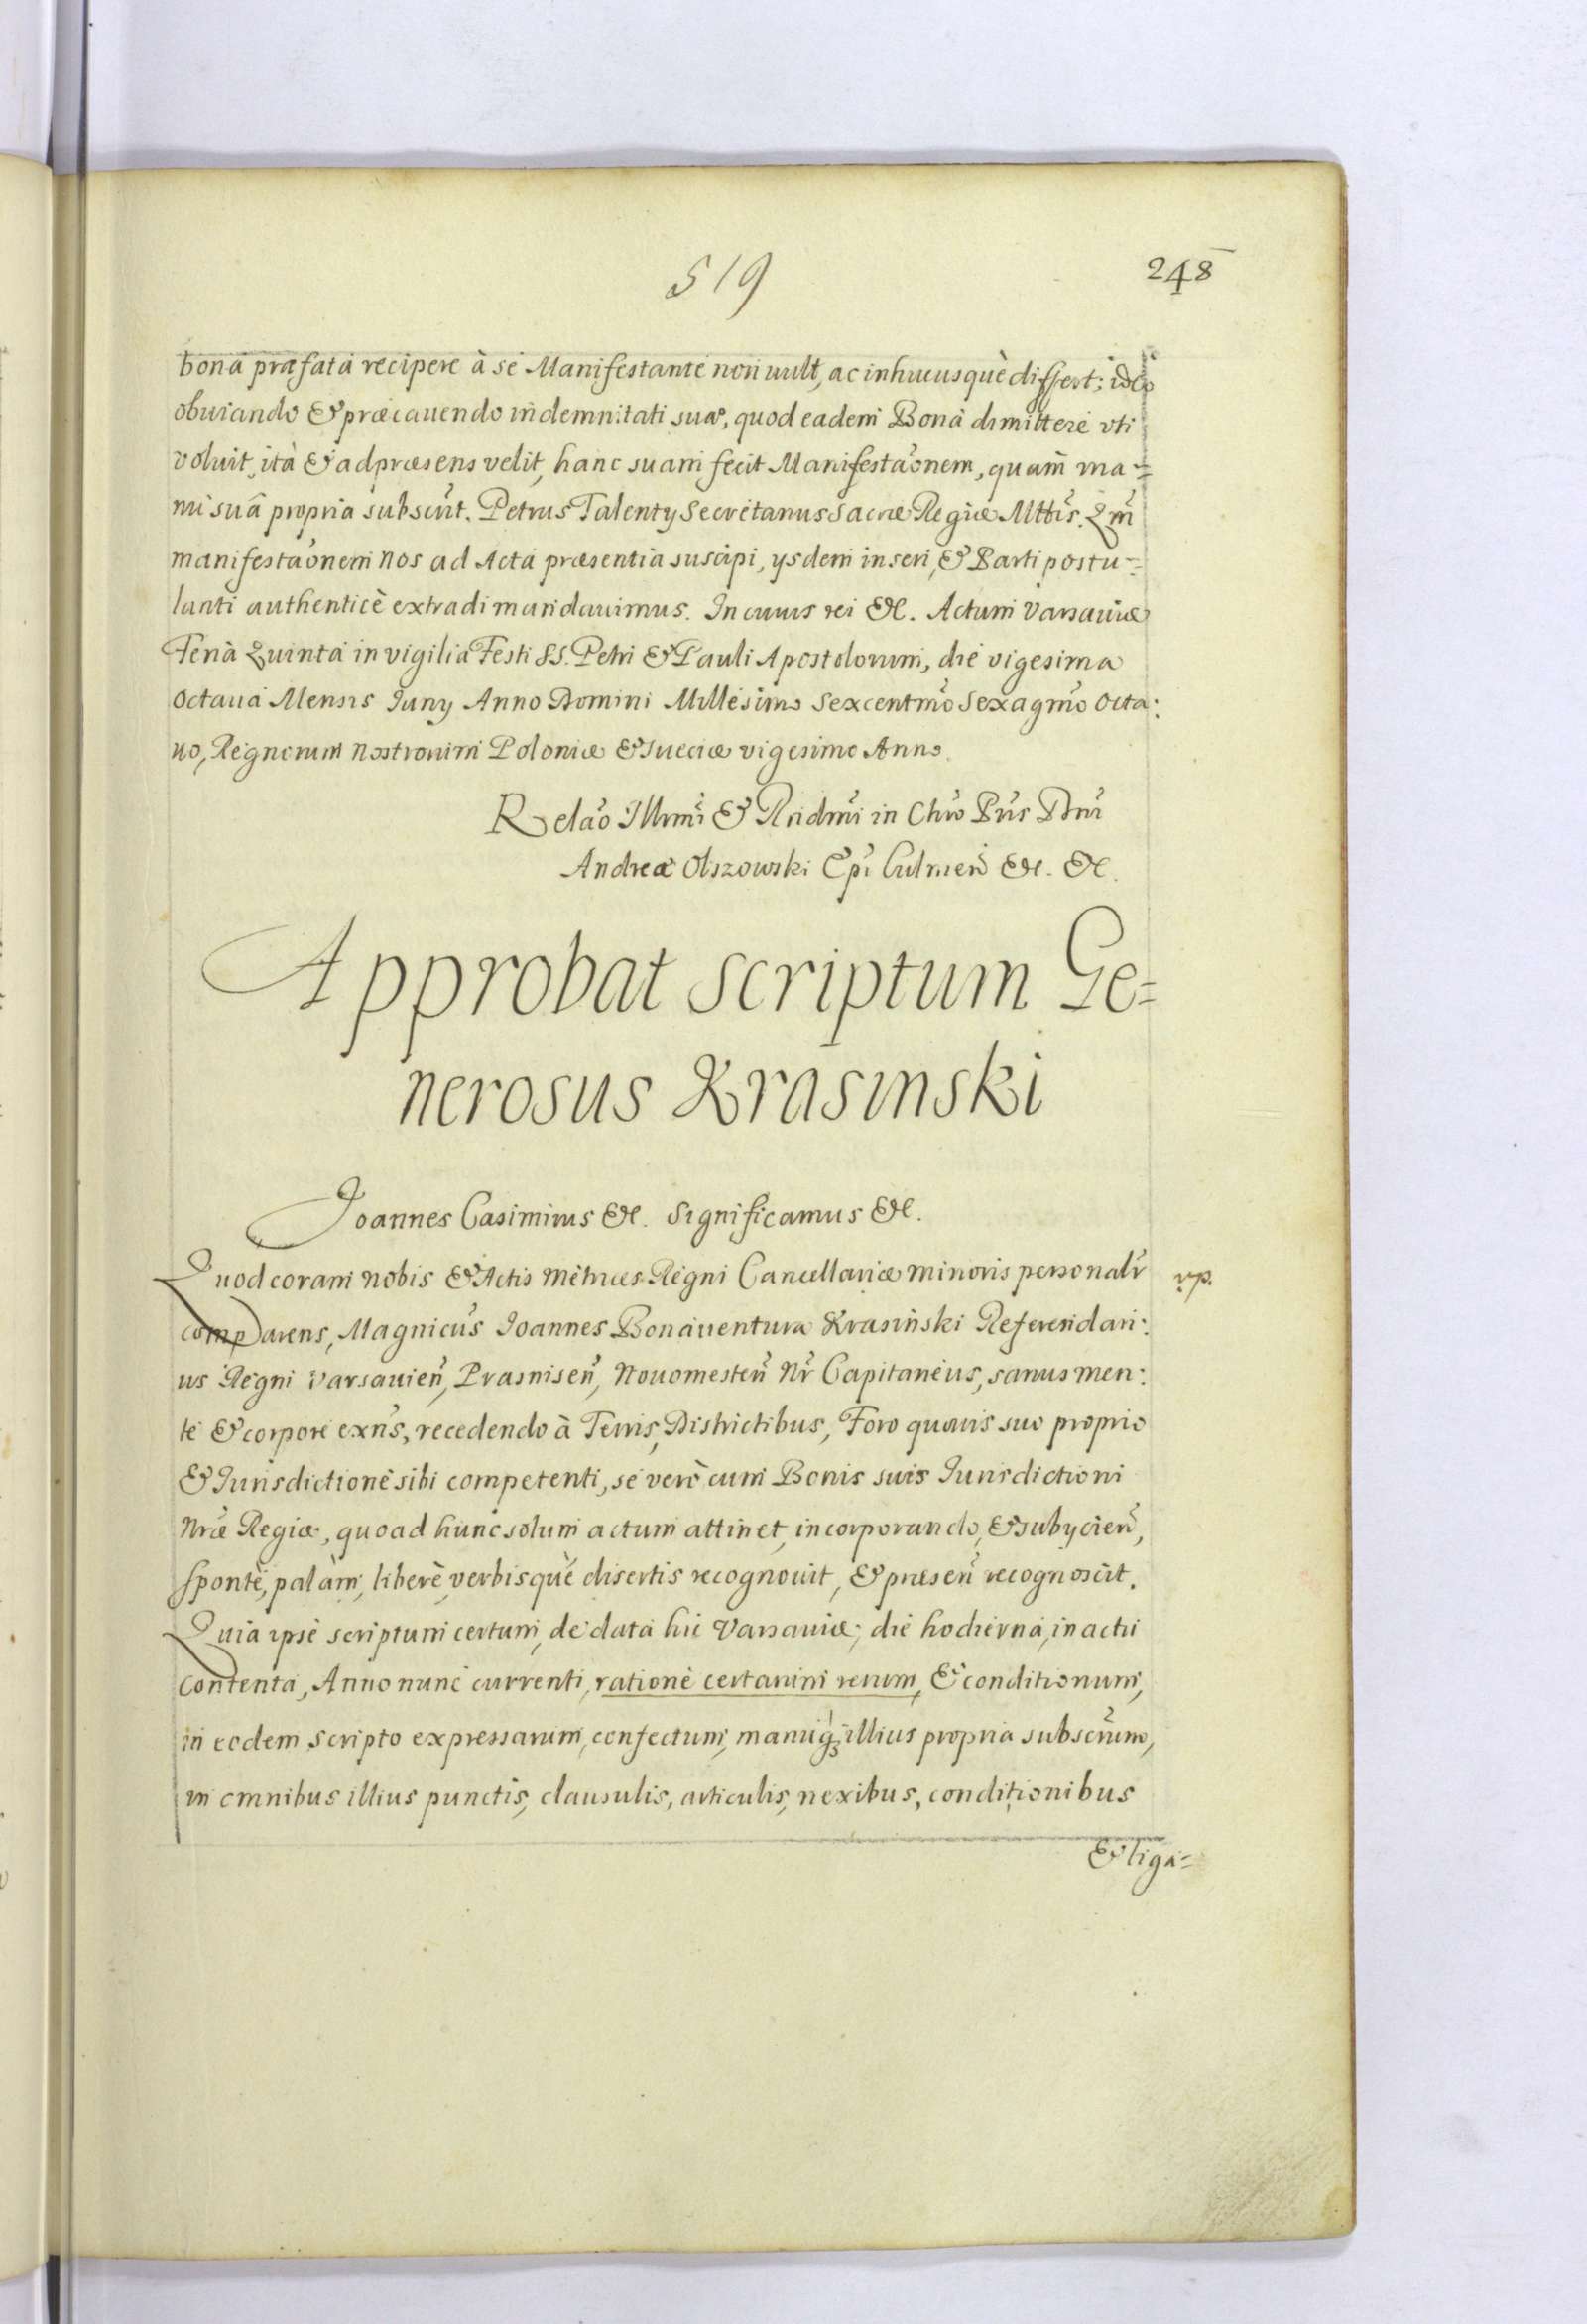 519
248
bona præfata recipere à se Manifestante non uult, ac inhucusquè differt; ideo
obuiando & præcauendo indemnitati suæ, quod eadem Bona dimittere vti
voluit, ità & ad præsens velit, hanc suam fecit Manifestaõnem, quam ma=
nu suâ propria subscrit. Petrus Talenty Secretarius Sacræ Regiæ Mttis. Qm
manifestaõnem nos ad Acta præsentia suscipi, ysdem inseri, & Parti postu=
lanti authenticè extradi mandauimus. In cuius rei &c. Actum Varsauiæ
Feria Quinta in vigilia Festi SS. Petri & Pauli Apostolorum, die vigesima
Octaua Mensis Iuny Anno Domini Millesimo Sexcentmo Sexagmo Octa:
uo, Regnorum Nostrorum Poloniæ & Sueciæ vigesimo Anno.
Relaõ Illrmi & Rndmi in Chro Pris Dni
Andreæ Olszowski Epi Culmen &c. &c.
Approbat Scriptum Ge=
nerosus Krasinski
Joannes Casimirus &c. Significamus &c.
Quod coram nobis & Actis Metrices Regni Cancellariæ minoris personalr
rp.
comparens, Magnicus Joannes Bonauentura Krasinski Referendari:
us Regni Varsauien, Prasnisen, Nouomesten Nr Capitaneus, sanus men:
te & corpore exns, recedendo à Terris, Districtibus, Foro quouis suo proprio
& Iurisdictione sibi competenti, se verò cum Bonis suis Iurisdictioni
Nræ Regiæ, quoad hunc solum actum attinet, incorporando, & subycien,
spontè, palàm, liberè, verbisquè disertis recognouit, & præsen recognoscit.
Quia ipse scriptum certum, de data hic Varsauiæ, die hodierna, in actu
contenta, Anno nunc currenti, ratione certarum rerum, & conditionum,
in eodem scripto expressarum, confectum, manuq3 illius propria subscrum,
in omnibus illius punctis, clausulis, articulis, nexibus, conditionibus
& liga=